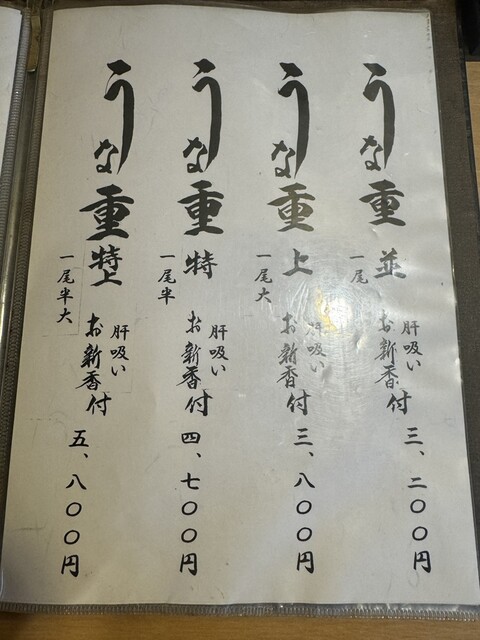 うな重 並
一尾
肝吸い
お新香付
三、二〇〇円
うな重 上
一尾大
肝吸い
お新香付
三、八〇〇円
うな重 特
一尾半
肝吸い
お新香付
四、七〇〇円
うな重 特上
一尾半大
肝吸い
お新香付
五、八〇〇円